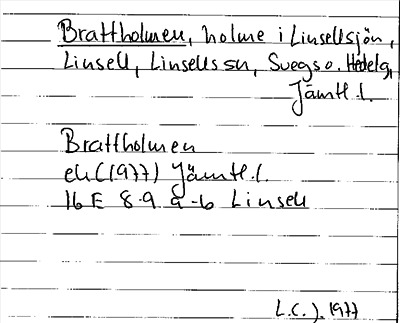 Brattholmen, holme i Linsellsjön,
Linsell, Linsells sn, Svegs o. Hedelg,
Jämtl. l.
Brattholmen
ek (1977) Jämtl. l.
16 E 8-9 a-b Linsell
L.C.J. 1977